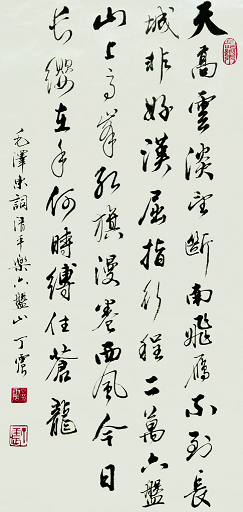 天高雲淡望斷南飛雁不到長
城非好漢屈指行程二萬六盤
山上高峰紅旗漫卷西風今日
長纓在手何時縛住蒼龍
毛澤東詞清平樂六盤山 丁